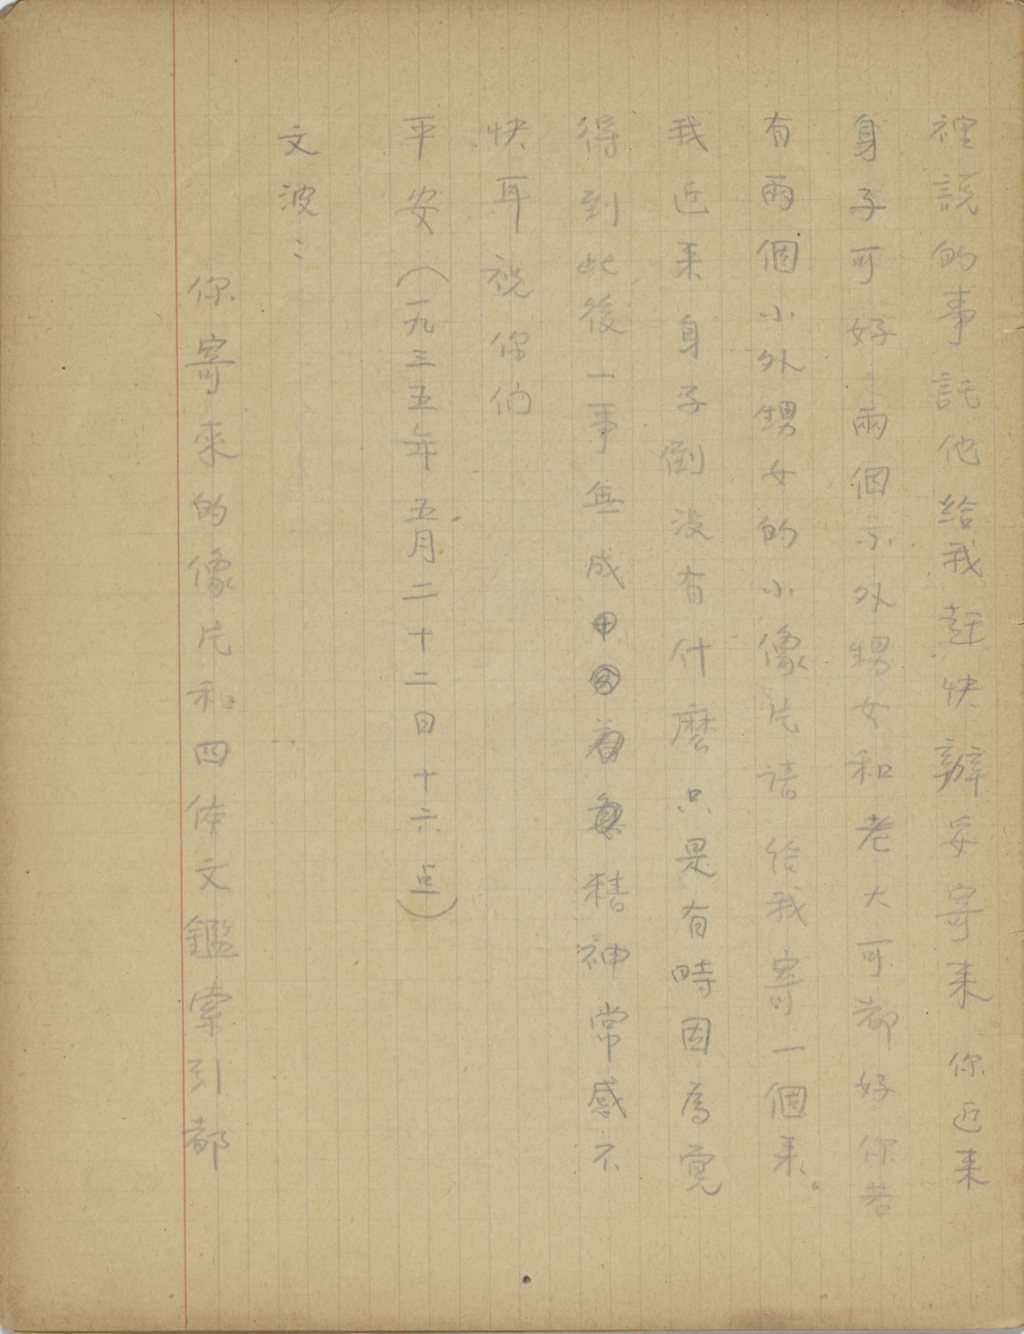 裡説的事託他給我赶快辦妥寄来你近来
身子可好兩個小外甥女和老大可都好你若
有兩個小外甥女的小像片請給我寄一個来。
我近来身子倒没有什麼只是有時因為覚
得到此後一事無成精神常感不
快耳祝你们
平安（一九三五年五月二十二日十六点）
文波：
你寄來的像片和四体文鑑索引都